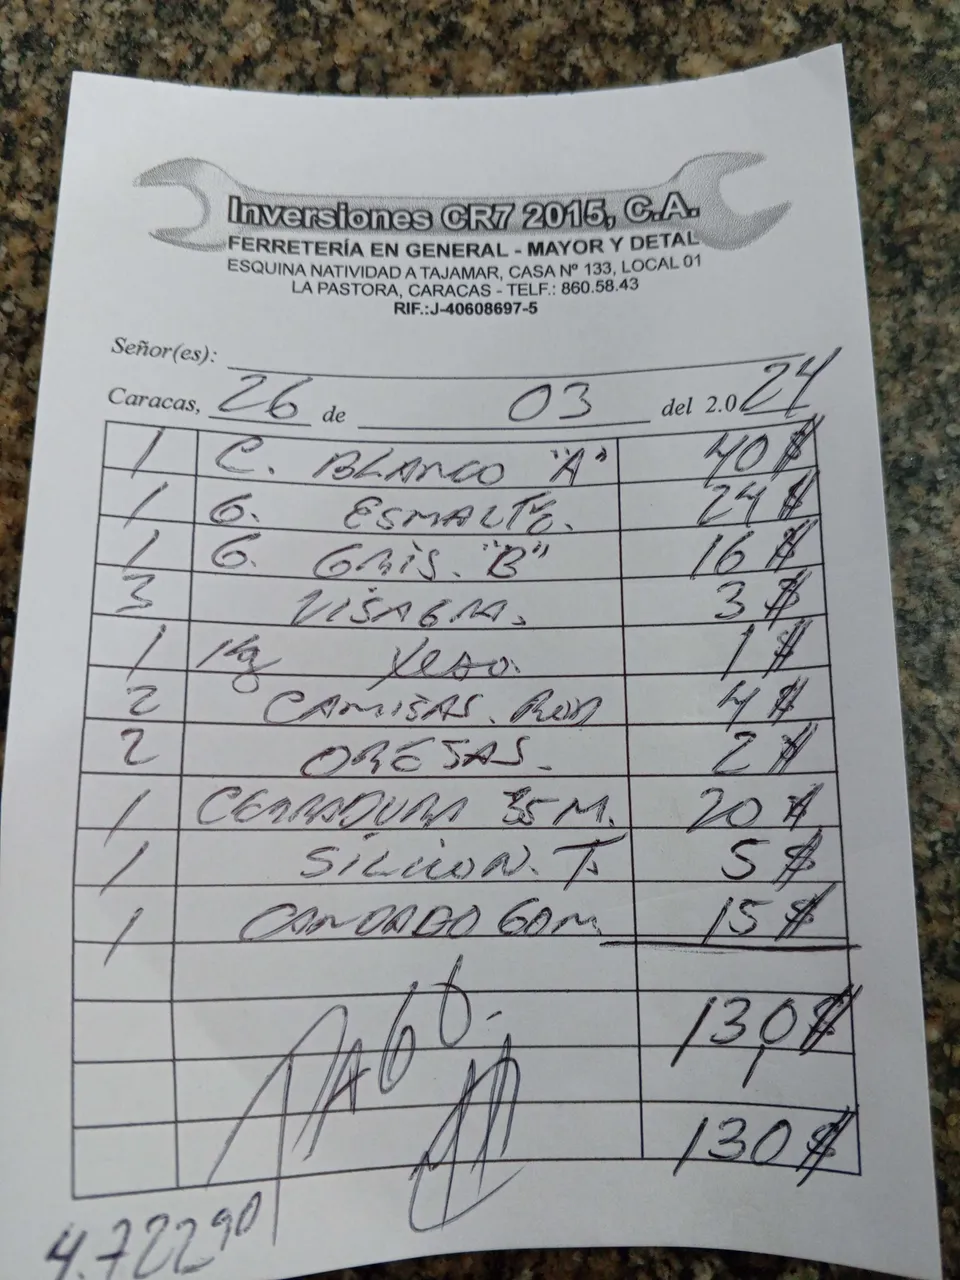 Inversiones CR7 2015, C.A.
FERRETERÍA EN GENERAL - MAYOR Y DETAL
ESQUINA NATIVIDAD A TAJAMAR, CASA Nº 133, LOCAL 01
LA PASTORA, CARACAS - TELF.: 860.58.43
RIF.:J-40608697-5
Señor(es):
Caracas, 26 de 03 del 2.024
1 C. BLANCO "A" 40 $
1 G. ESMALTE. 24 $
1 G. GRIS. "B" 16 $
3 VISAGRA. 3 $
1 Kg Yeso. 1 $
2 CAMISAS. ROD 4 $
2 OREJAS. 2 $
1 CERRADURA 35 M. 20 $
1 SILICON. T. 5 $
1 CANDADO 60M 15 $
130 $
130 $
4.722,90